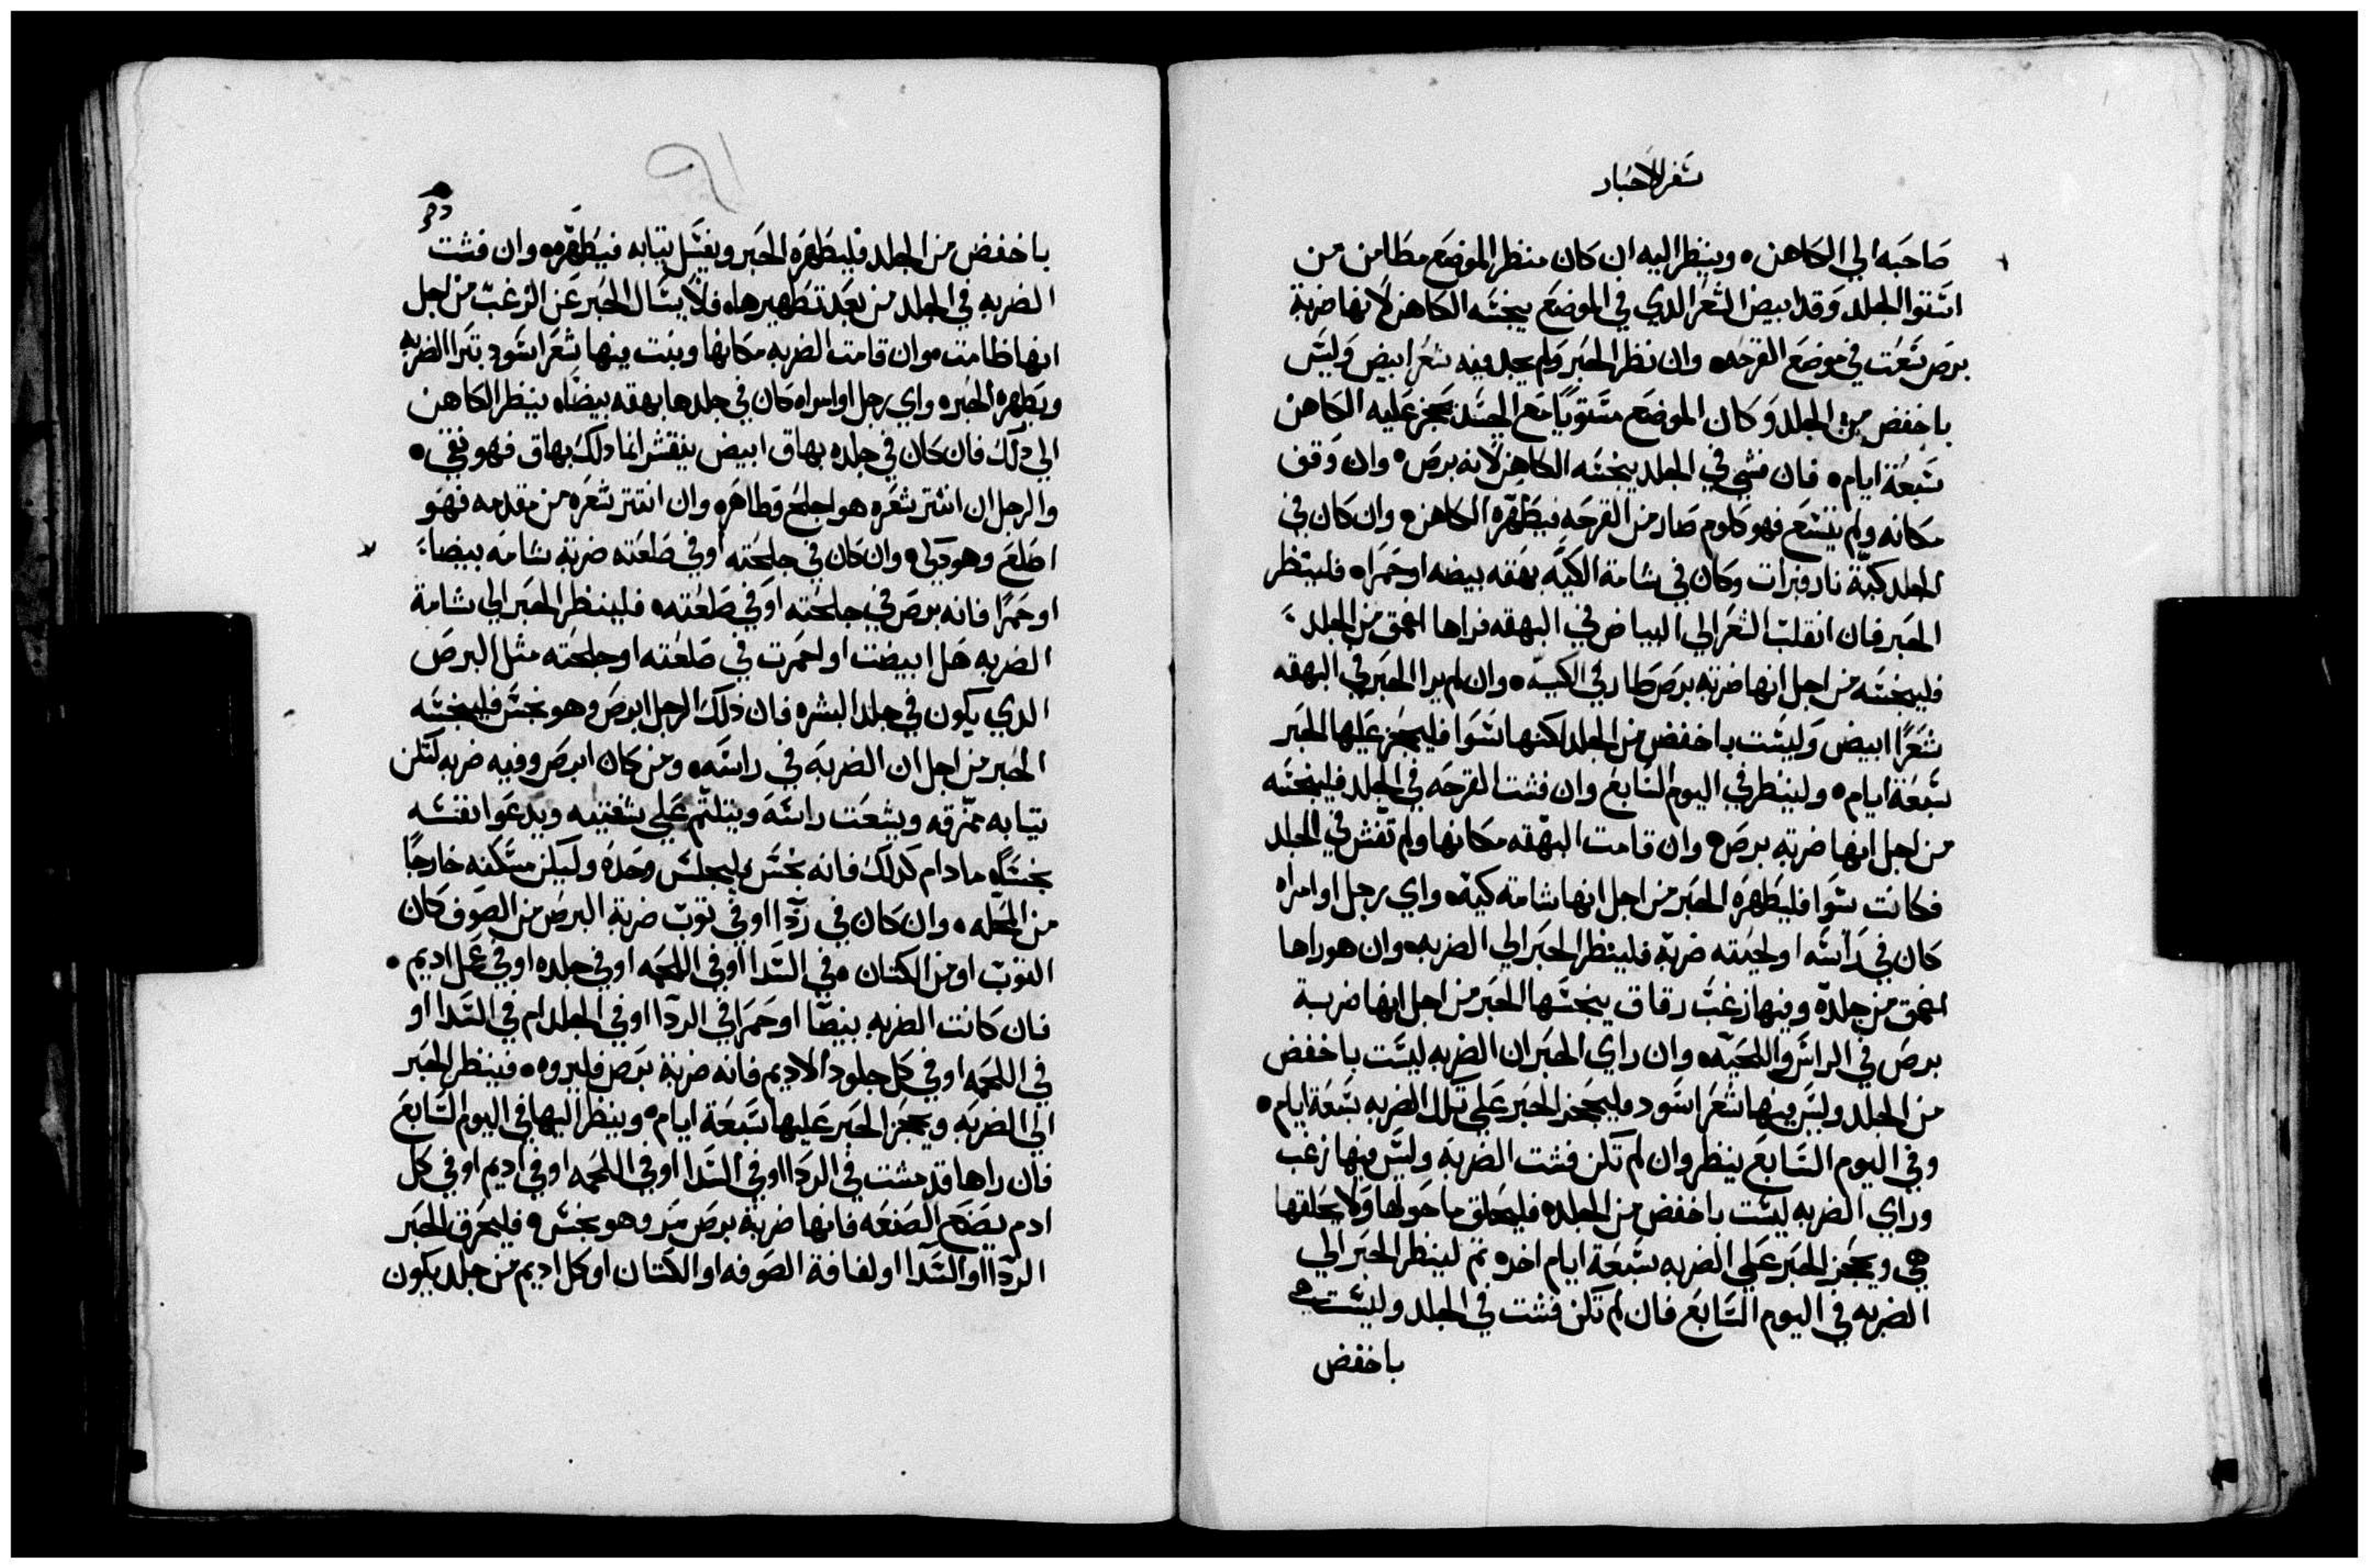 سفر الاحبار
صاحبه الي الكاهن، وينظر اليه ان كان منظر الموضع مطامن من
استوا الجلد وقد ابيض الشعر الدي في الموضع ينجسه الكاهن لانها ضربة
برص سعت في موضع القرحه، وان نظر الحبر ولم يجد فيه شعر ابيض وليس
باخفض من الجلد وكان الموضع مستويا مع الجسد يحجز عليه الكاهن
سبعة ايام، فان فشي في الجلد ينجسه الكاهن لانه برص، وان وقف
مكانه ولم يتسع فهو كلوم صار من القرحه فيطهره الكاهن، وان كان في
الجلد كية نار فبرات وكان في شامة الكيه بهقه بيضه او حمراه فلينظر
الحبر فان انقلب الشعر الي البياض في البهقه فراها اعمق من الجلد
فلينجسه من اجل انها ضربة برص طار في الكيه، وان لم يرا الحبر في البهقه
شعرا ابيض وليست باخفض من الجلد لكنها سوا فليحجز عليها الحبر
سبعة ايام، ولينظر في اليوم السابع وان فشت القرحه في الجلد فلينجسه
من اجل انها ضربة برص، وان قامت البهقه مكانها ولم تفش في الجلد
فكانت سوا فليطهره الحبر من اجل انها شامة كيه، واي رجل او امراه
كان في راسه او لحيته ضربة فلينظر الحبر الي الضربه، وان هو راها
اعمق من جلده وفيها زغب رقاق ينجسها الحبر من اجل انها ضربة
برص في الراس واللحيه، وان راي الحبر ان الضربه ليست باخفض
من الجلد وليس فيها شعر اسود فليحجز الحبر علي تلك الضربه سبعة ايام،
وفي اليوم السابع ينظر وان لم تكن فشت الضربه وليس فيها زغب
وراي الضربه ليست باخفض من الجلده فليحلق ما حولها ولا يحلقها
هي ويحجز الحبر علي الضربه سبعة ايام اخره تم لينظر الحبر الي
الضربه في اليوم السابع فان لم تكن فشت في الجلد وليست هي
باخفض
٩١
باخفض من الجلد فليطهره الحبر ويغسل تيابه فيطهره، وان فشت
الضربه في الجلد من بعد تطهيرها، فلا يسال الحبر عن الزغب من اجل
انها طامت، وان قامت الضربه مكانها وبنت فيها شعر اسود تبرا الضربه
ويطهره الحبر، واي رجل او امراه كان في جلدها بهقه بيضاه ينظر الكاهن
الي دلك فان كان في جلده بهاق ابيض ينقشر انما دلك بهاق فهو نقي،
والرجل ان انتتر شعره هو اجلح وطاهره وان انتتر شعره من مقدمه فهو
اصلع وهو دكي، وان كان في جلحته او في صلعته ضربة شامة بيضاء
او حمرا فانه برص في جلحته او في صلعته، فلينظر الحبر الي شامة
الضربه هل ابيضت او احمرت في صلعته او جلحته مثل البرص
الدي يكون في جلد البشره فان ذلك الرجل ابرص وهو نجس فلينجسه
الحبر من اجل ان الضربه في راسه، ومن كان ابرص وفيه ضربه لتكن
تيابه ممزقه ويشعت راسه ويتلتم علي شفتيه ويدعوا نفسه
نجسا، مادام كدلك فانه نجس، ليجلس وحده وليكن مسكنه خارجا
من المحله، وان كان في ردا او في توب ضربة البرص من الصوف كان
التوب او من الكتان، في السدا او في اللحمه او في جلده او في عمل اديم،
فان كانت الضربه بيضا او حمرا في الردا او في الجلد ام في السدا او
في اللحمه او في كل جلود الاديم فانه ضربة برص فليروه، فينظر الحبر
الي الضربه ويحجز الحبر عليها سبعة ايام، وينظر اليها في اليوم السابع
فان راها قد مشت في الردا او في السدا او في اللحمه او في اديم او في كل
ادم يصنع الصنعه فانها ضربة برص مر وهو نجس، فليحرق الحبر
الردا او السدا او لفافة الصوفه او الكتان او كل اديم من جلد يكون